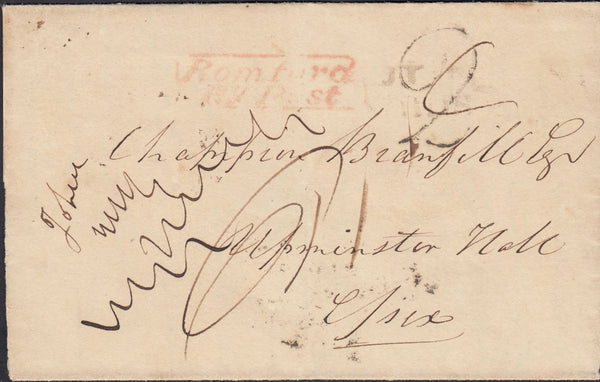 Romford
Py Post
2
John
Champion Branfill Esqr
Upminster Hall
Essex